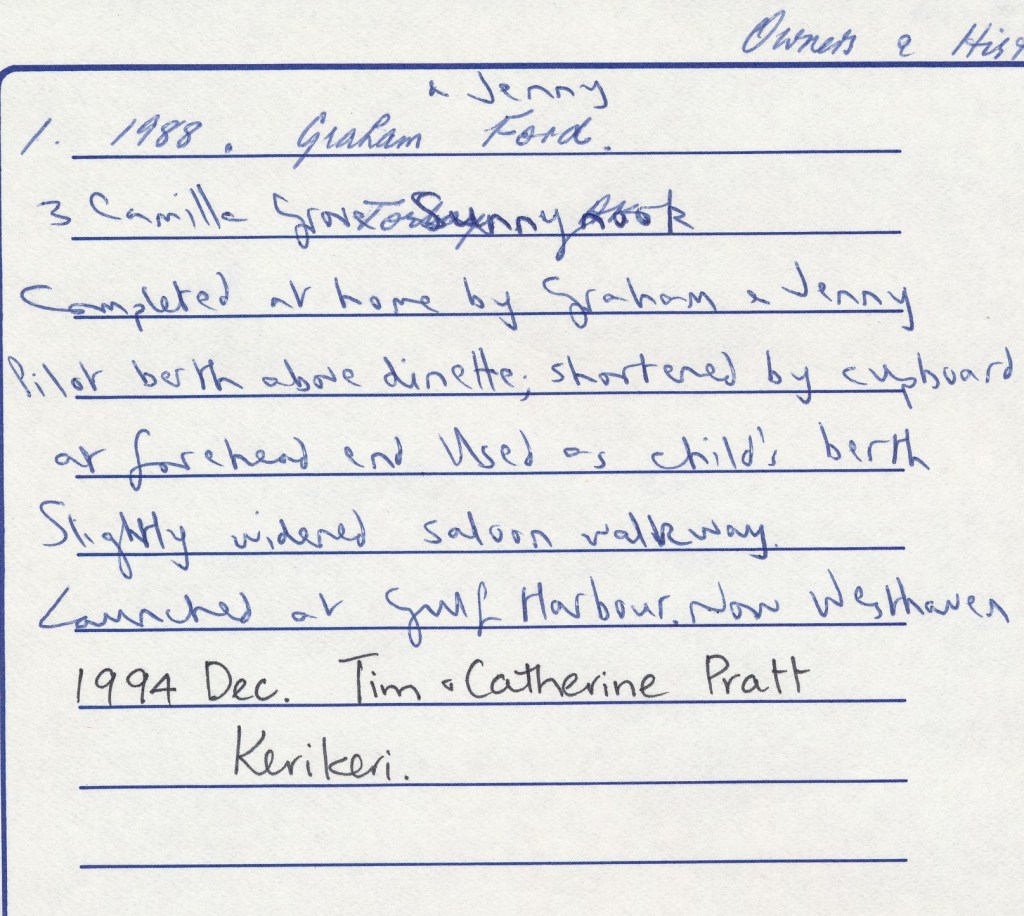 Owners &
& Jenny
1. 1988. Graham Ford.
3 Camilla Grove Sunnynook
Completed at home by Graham & Jenny
Pilot berth above dinette; shortened by cupboard
at forehead end Used as child's berth
Slightly widened saloon walkway.
Launched at Gulf Harbour. Now Westhaven
1994 Dec. Tim & Catherine Pratt
Kerikeri.